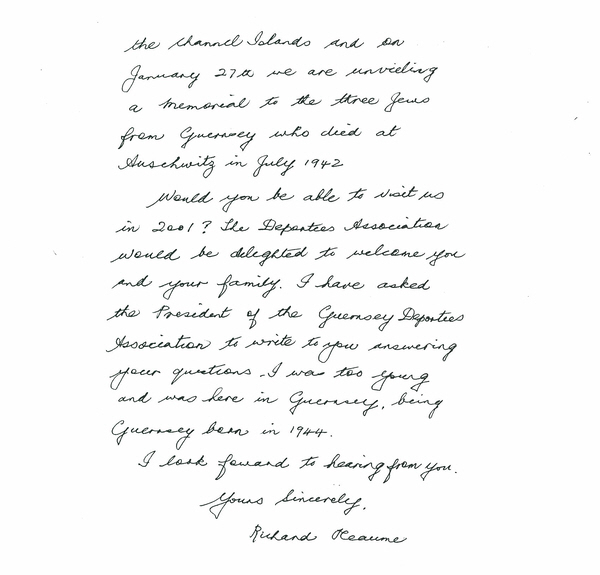 the Channel Islands and on
January 27th we are unvieling
a memorial to the three Jews
from Guernsey who died at
Auschwitz in July 1942
Would you be able to visit us
in 2001? The Deportees Association
would be delighted to welcome you
and your family. I have asked
the President of the Guernsey Deportees
Association to write to you answering
your questions. I was too young
and was here in Guernsey, being
Guernsey born in 1944.
I look foward to hearing from you.
Yours Sincerely,
Richard Heaume